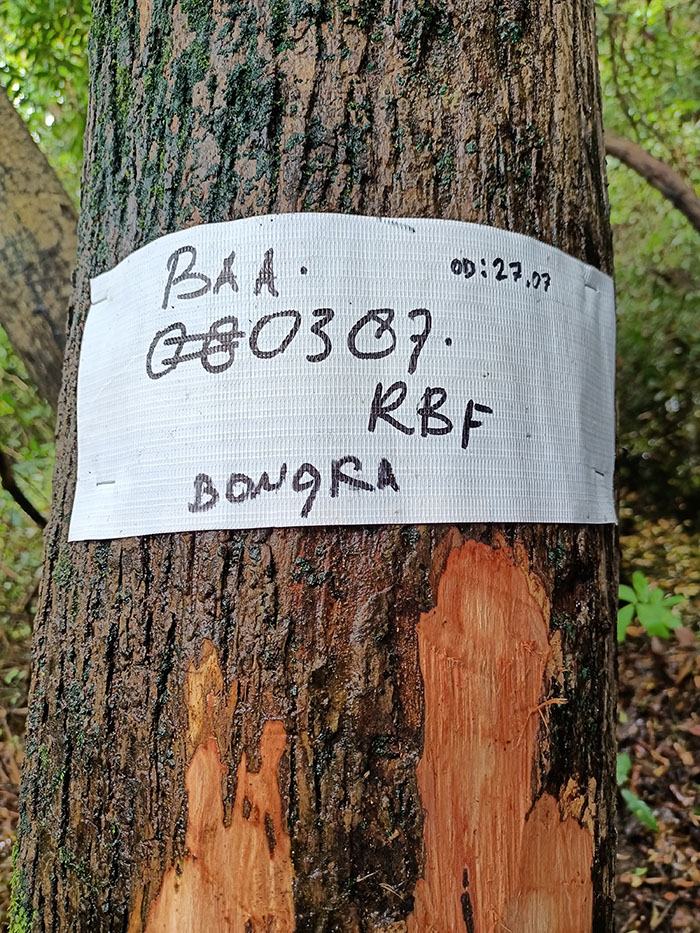 BAA.
OD:27.07
000387.
RBF
BONGRA